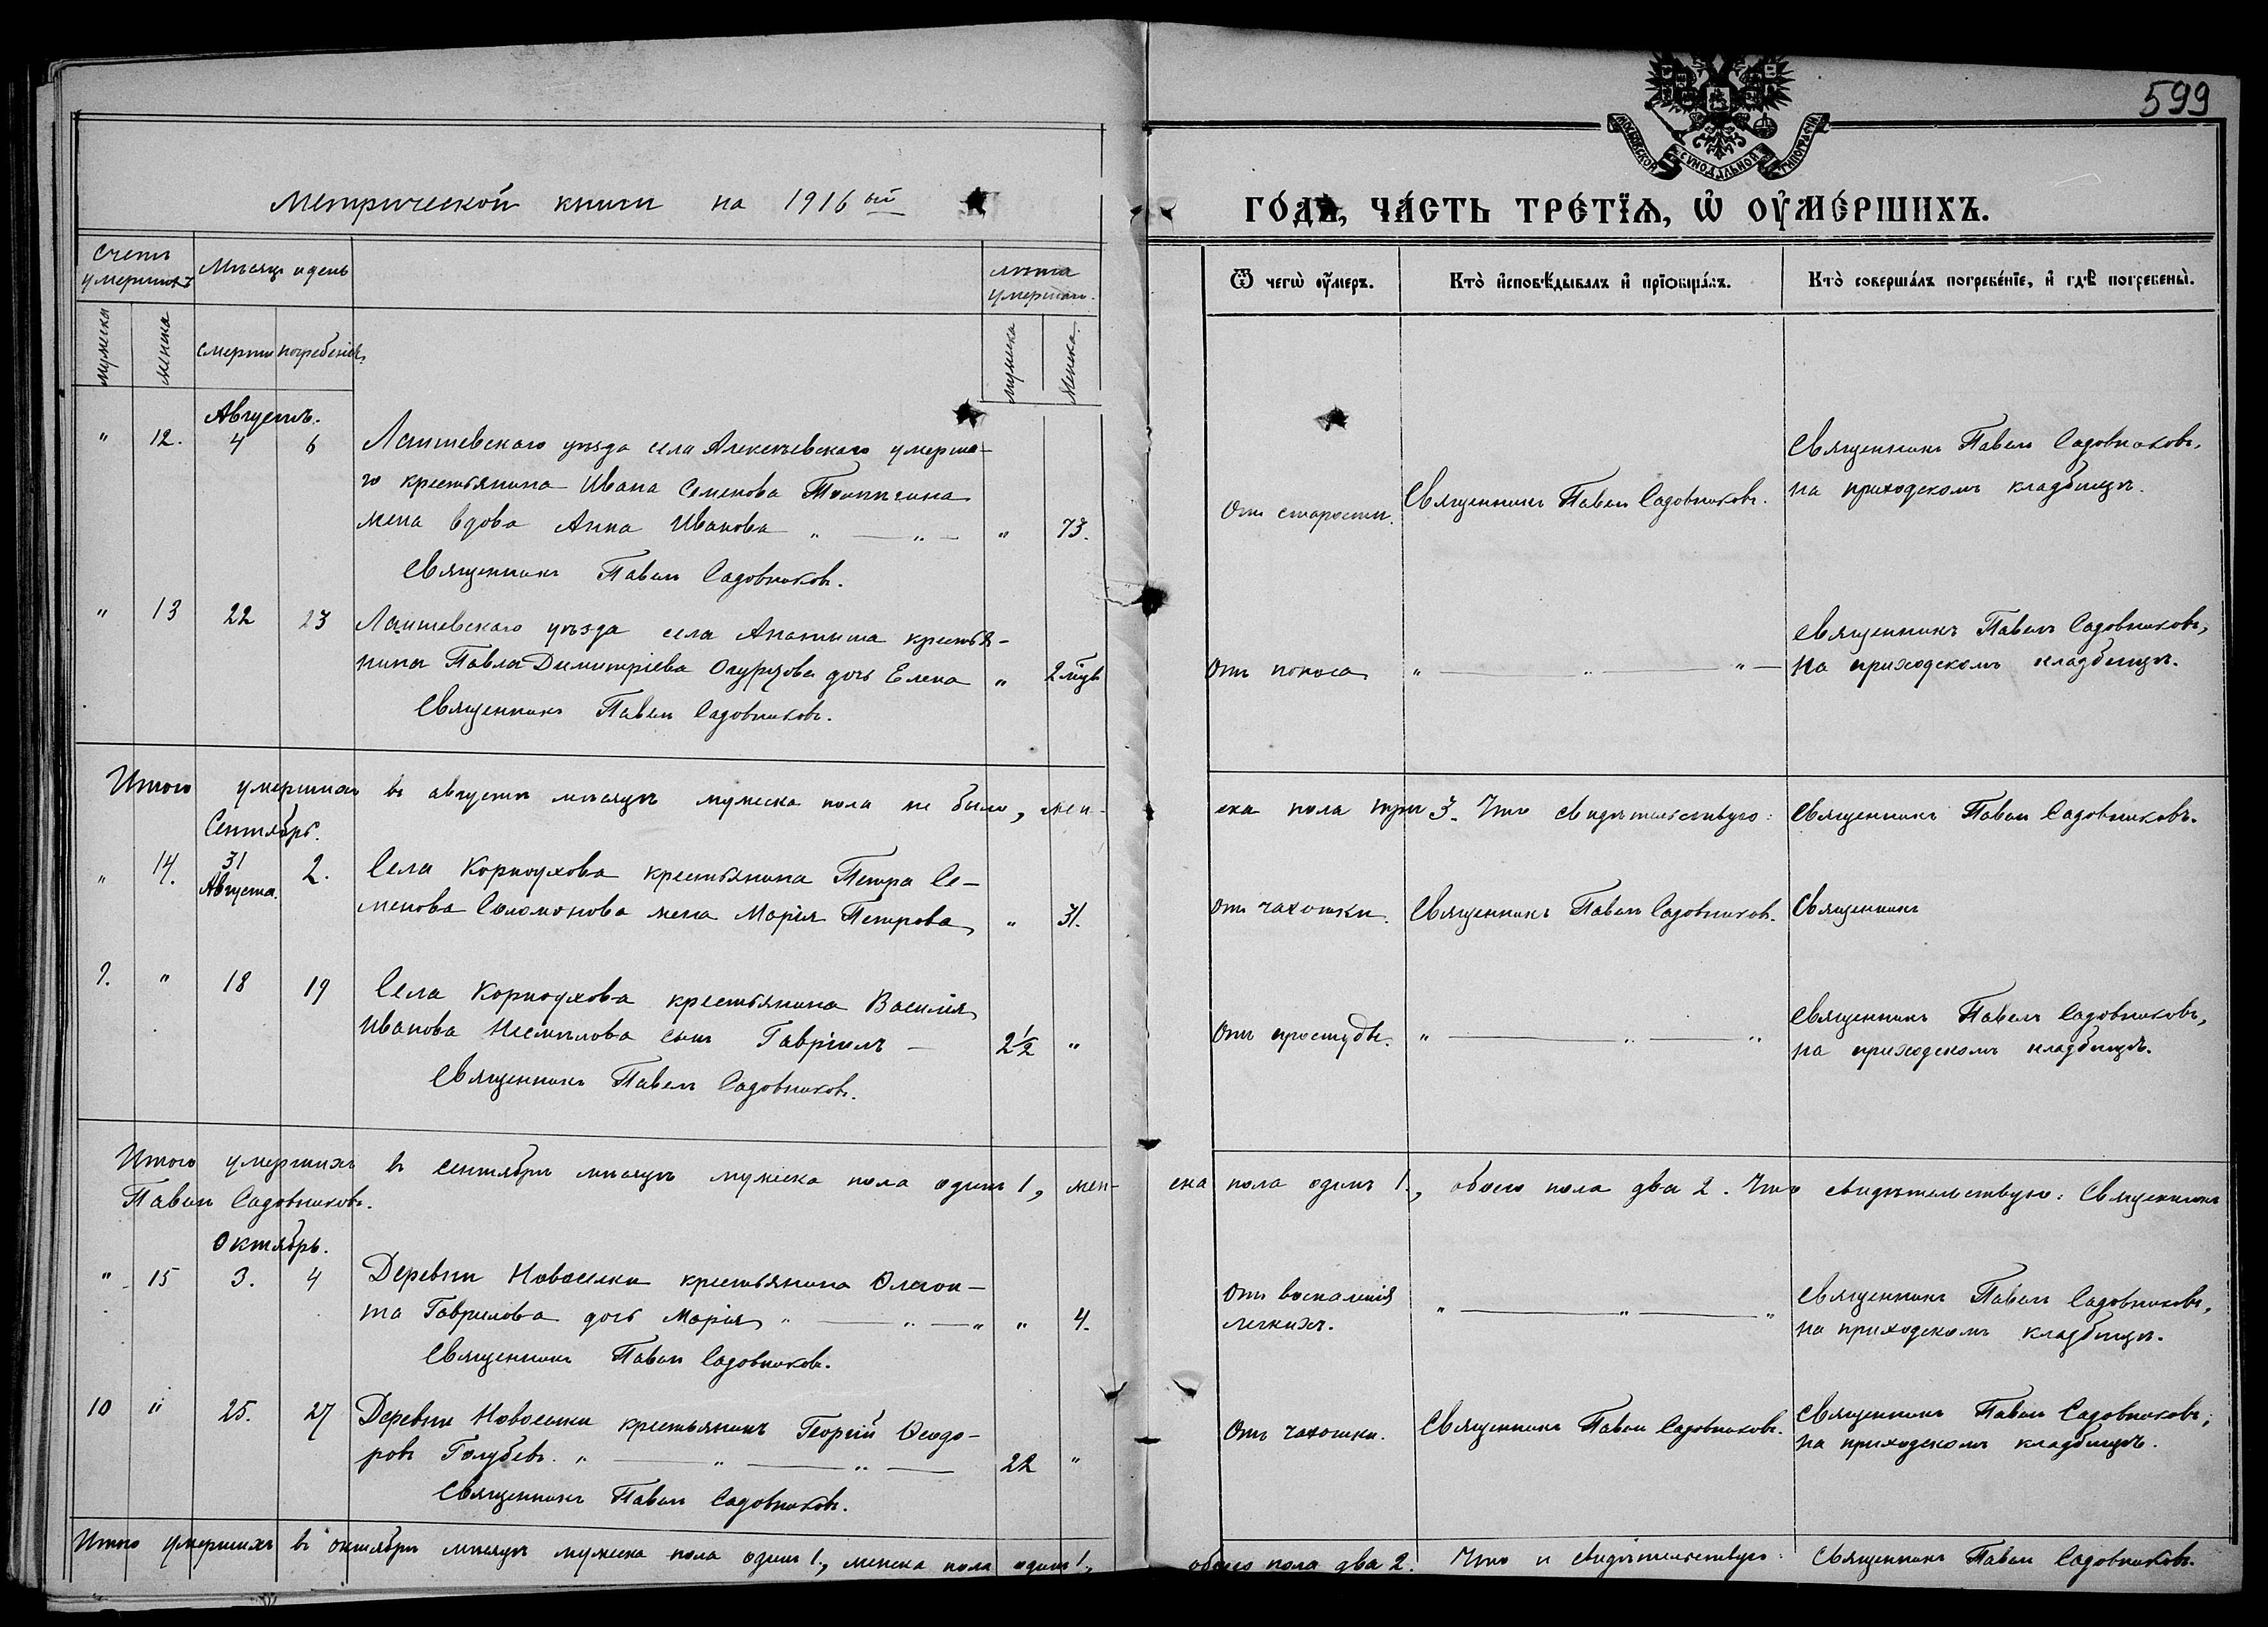 599
МОСКОВСКОЙ СѴНОДАЛЬНОЙ ТИПОГРАФІИ
Метрической книги на 1916 ый
ГО́ДЪ, ЧА́СТЬ ТРЕ́ТЇѦ, Ѡ҆ ОУ҆МЕ́РШИХЪ.
Счетъ умершихъ
Мѣсяцъ и день
лѣта умершаго.
мужеска
женска
смерти
погребенія.
мужеска
женска.
Ѿ чегѡ̀ оу҆́меръ.
Кто̀ и҆сповѣ́дывалъ и҆ прїѡбща́лъ.
Кто̀ соверша́лъ погребе́нїе, и҆ гдѣ̀ погребены̀.
Августъ.
" 12. 4 6 Лаишевскаго уѣзда села Алексѣевскаго умерша-
го крестьянина Ивана Семенова
жена вдова Анна Иванова " — " — " 73.
Священникъ Павелъ Садовниковъ.
Отъ старости.
Священникъ Павелъ Садовниковъ.
Священникъ Павелъ Садовниковъ,
на приходскомъ кладбищѣ.
" 13 22 23 Лаишевскаго уѣзда села крестья-
нина Павла Димитріева Огурцова дочь Елена " 2 мѣс.
Священникъ Павелъ Садовниковъ.
Отъ поноса " — " — " —
Священникъ Павелъ Садовниковъ,
на приходскомъ кладбищѣ.
Итого умершихъ въ августѣ мѣсяцѣ мужеска пола не было, жен-
ска пола три 3. Что свидѣтельствую: Священникъ Павелъ Садовниковъ.
Сентябрь.
" 14. 31 Августа. 2. Села Корноухова крестьянина Петра Се-
менова Соломонова жена Марія Петрова " 31.
Отъ чахотки. Священникъ Павелъ Садовниковъ. Священникъ
9. " 18 19 Села Корноухова крестьянина Василія
Иванова Несмѣлова сынъ Гавріилъ — 2½ "
Священникъ Павелъ Садовниковъ.
Отъ простуды. " — " — "
Священникъ Павелъ Садовниковъ,
на приходскомъ кладбищѣ.
Итого умершихъ въ сентябрѣ мѣсяцѣ мужеска пола одинъ 1, жен-
ска пола одинъ 1., обоего пола два 2. Что свидѣтельствую: Священникъ
Павелъ Садовниковъ.
Октябрь.
" 15 3. 4 Деревни Новоселки крестьянина
та Гаврилова дочь Марія " — " — " " 4.
Священникъ Павелъ Садовниковъ.
Отъ воспаленія
легкихъ.
" — " — "
Священникъ Павелъ Садовниковъ,
на приходскомъ кладбищѣ.
10 " 25. 27 Деревни Новоселки крестьянинъ Георгій Ѳеодо-
ровъ Голубевъ. " — " — " — 22 "
Священникъ Павелъ Садовниковъ.
Отъ чахотки. Священникъ Павелъ Садовниковъ.
Священникъ Павелъ Садовниковъ,
на приходскомъ кладбищѣ.
Итого умершихъ въ октябрѣ мѣсяцѣ мужеска пола одинъ 1., женска пола одинъ 1.,
обоего пола два 2. Что и свидѣтельствую: Священникъ Павелъ Садовниковъ.